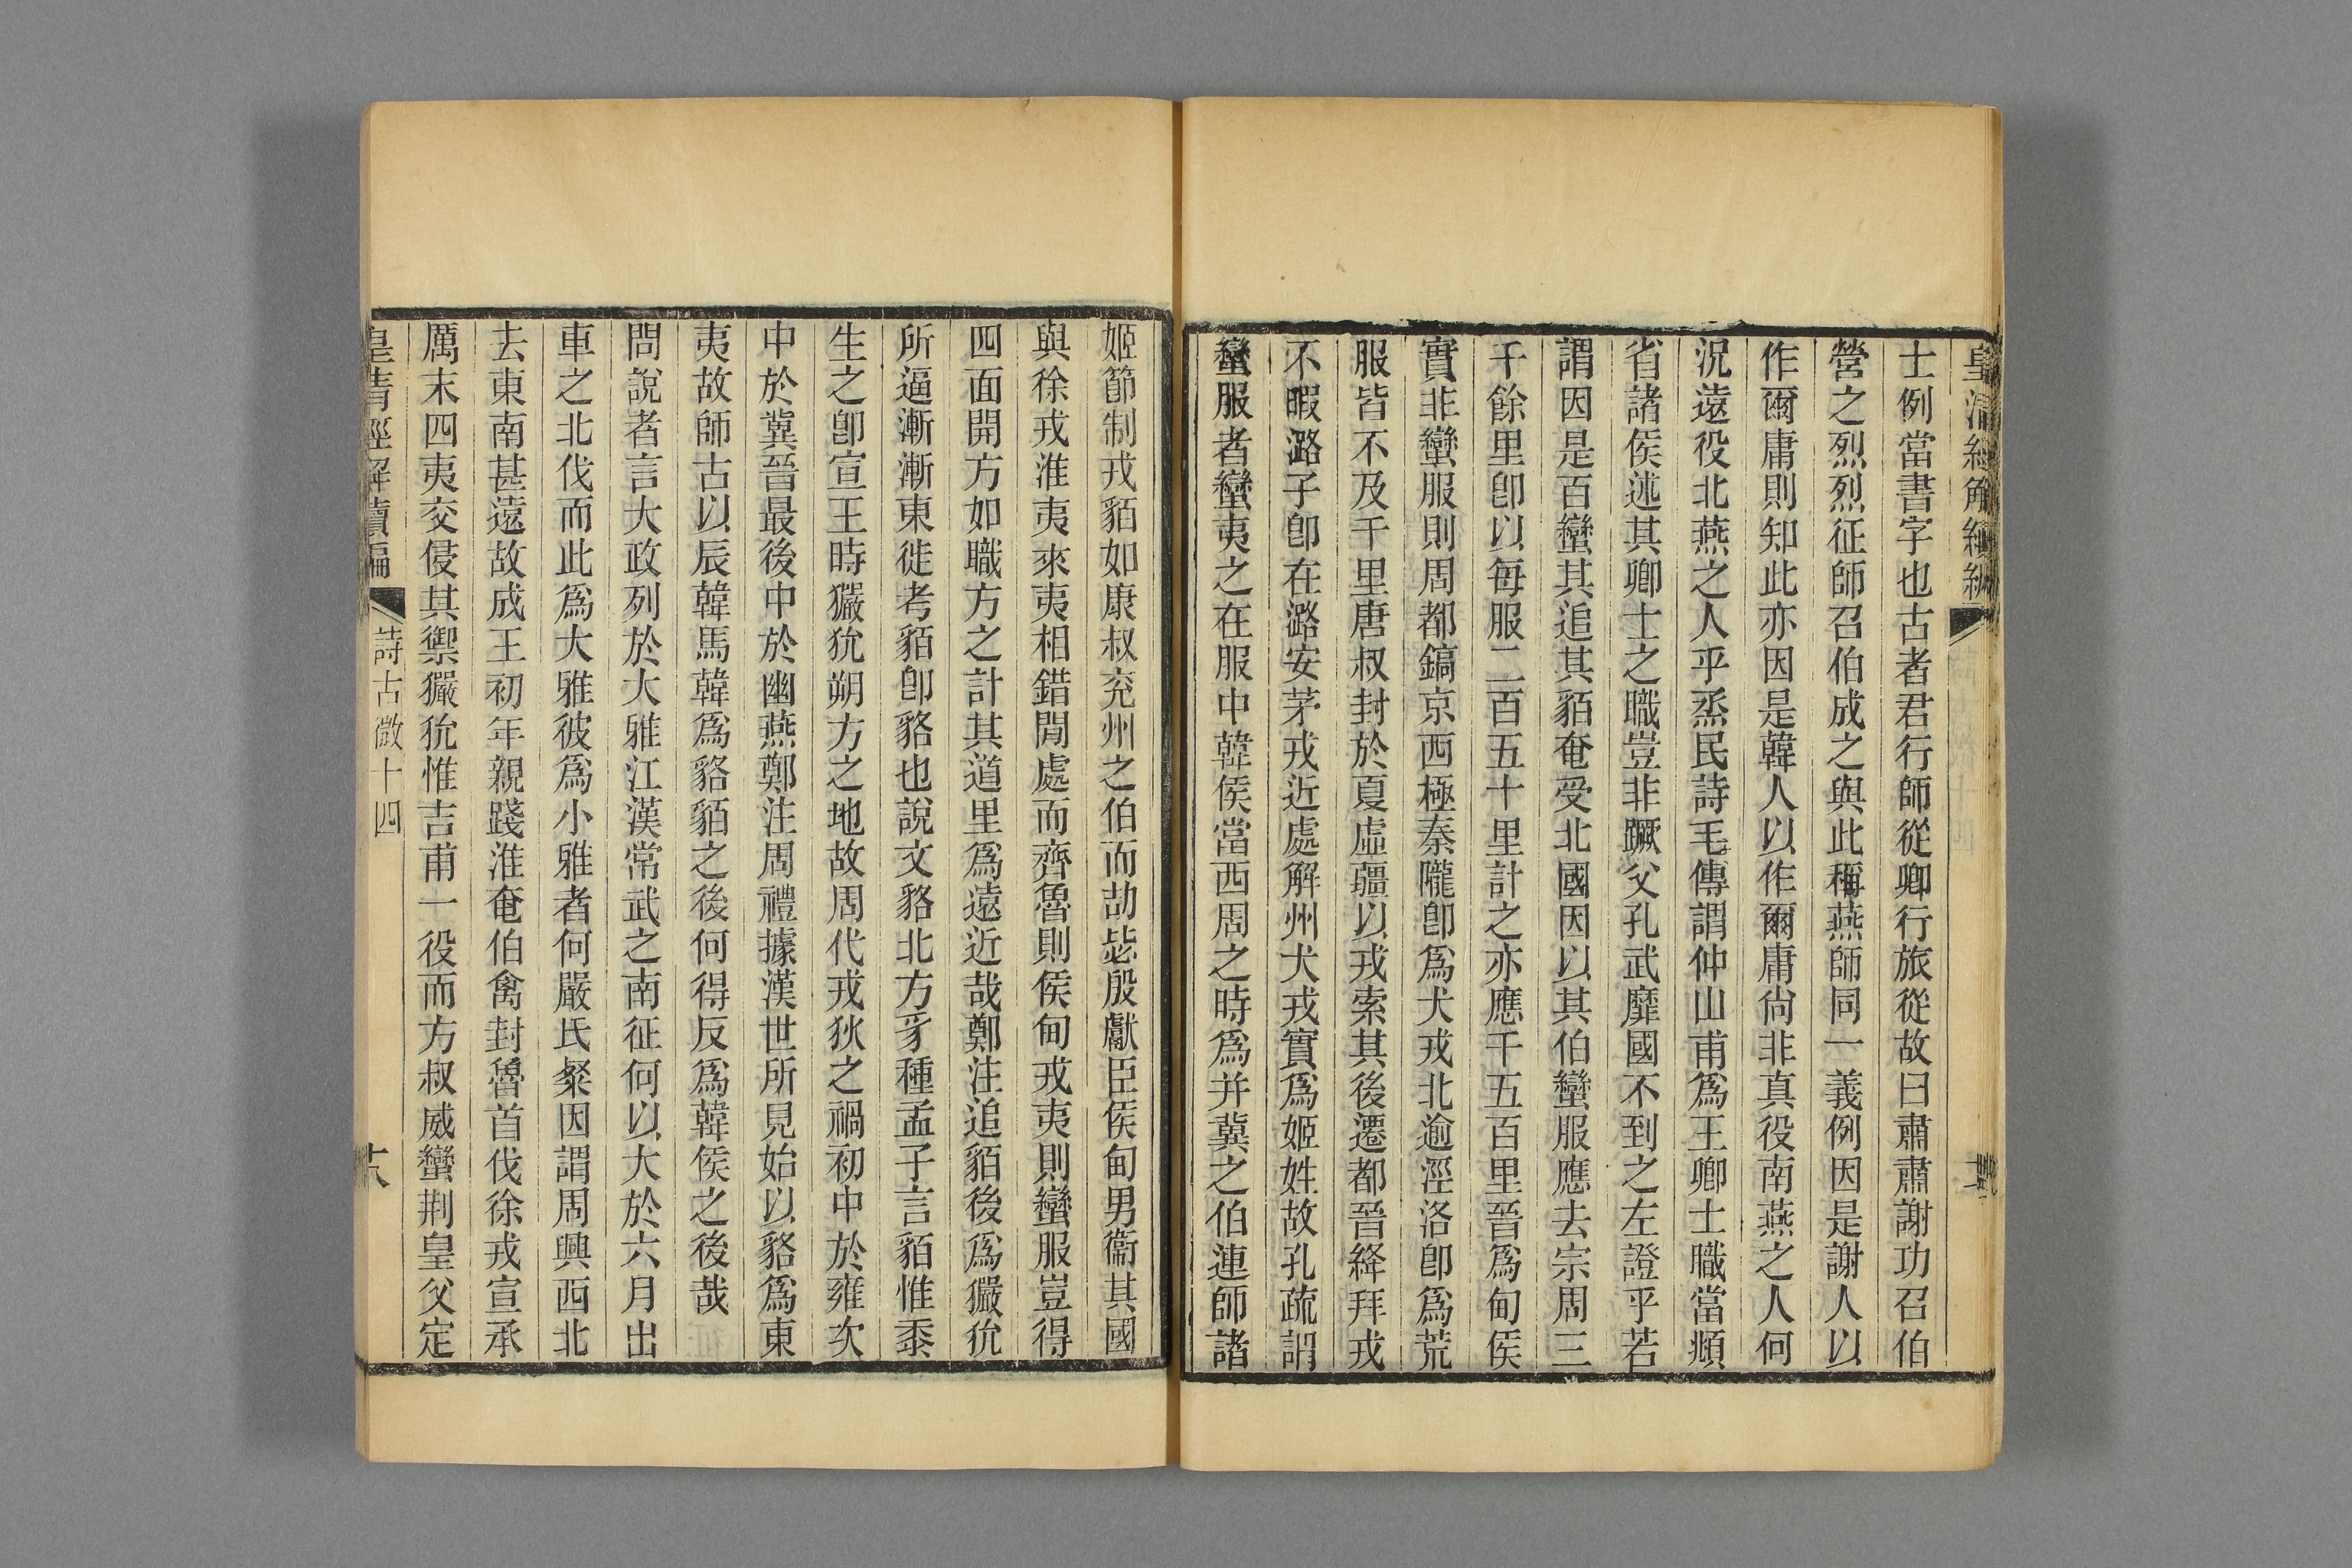 皇清經解續編
士例當書字也古者君行師從卿行旅從故曰肅肅謝功召伯
營之烈烈征師召伯成之與此稱燕師同一義例因是謝人以
作爾庸則知此亦因是韓人以作爾庸尙非真役南燕之人何
況遠役北燕之人乎烝民詩毛傳謂仲山甫爲王卿士職當頫
省諸侯述其卿士之職豈非蹶父孔武靡國不到之左證乎若
謂因是百蠻其追其貊奄受北國因以其伯蠻服應去宗周三
千餘里卽以每服二百五十里計之亦應千五百里晉爲甸侯
實非蠻服則周都鎬京西極秦隴卽爲犬戎北逾涇洛卽爲荒
服皆不及千里唐叔封於夏虛疆以戎索其後遷都晉絳拜戎
不暇潞子卽在潞安茅戎近處解州犬戎實爲姬姓故孔疏謂
蠻服者蠻夷之在服中韓侯當西周之時爲并冀之伯連師諸
姬節制戎貊如康叔兖州之伯而劼毖殷獻臣侯甸男衞其國
與徐戎淮夷來夷相錯閒處而齊魯則侯甸戎夷則蠻服豈得
四面開方如職方之計其道里爲遠近哉鄭注追貊後爲玁狁
所逼漸漸東徙考貊卽貉也說文貉北方豸種孟子言貊惟黍
生之卽宣王時玁狁朔方之地故周代戎狄之禍初中於雍次
中於冀晉最後中於幽燕鄭注周禮據漢世所見始以貉爲東
夷故師古以辰韓馬韓爲貉貊之後何得反爲韓侯之後哉
問說者言大政列於大雅江漢常武之南征何以大於六月出
車之北伐而此爲大雅彼爲小雅者何嚴氏粲因謂周興西北
去東南甚遠故成王初年親踐淮奄伯禽封魯首伐徐戎宣承
厲末四夷交侵其禦玁狁惟吉甫一役而方叔威蠻荆皇父定
皇清經解續編
詩古微十四
六